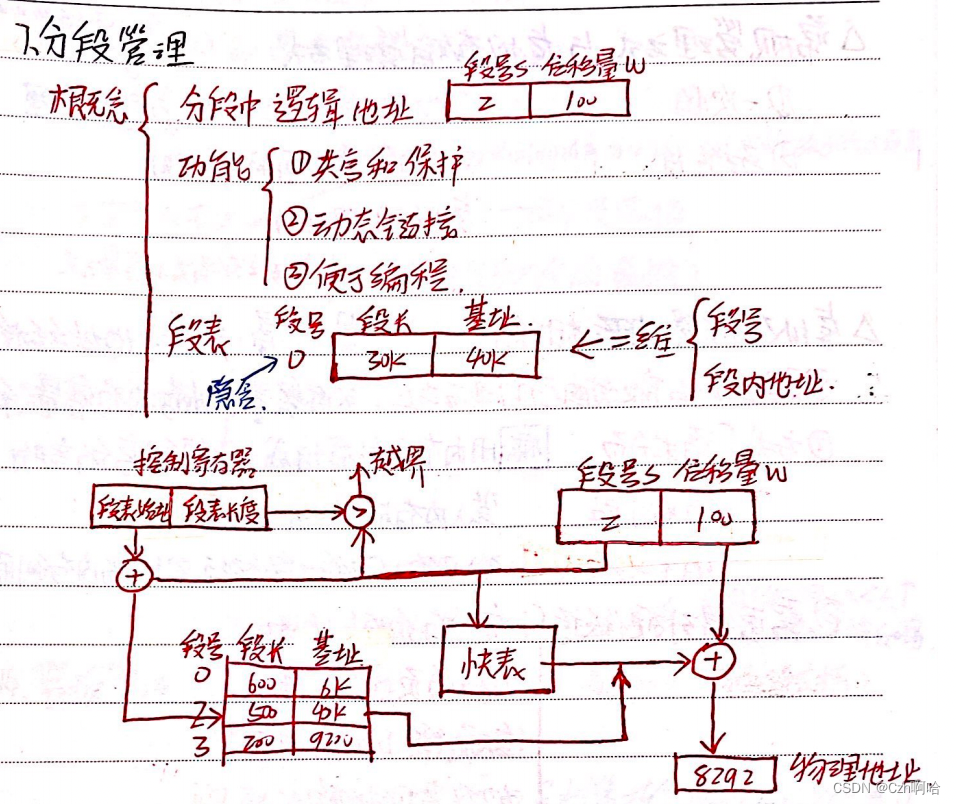 7、分段管理
概念 分段中逻辑地址 段号S 位移量W
2 100
功能 ①共享和保护
②动态链接
③便于编程.
段表 段号 段长 基址.
0 30K 40K ←二维 段号 段内地址.
隐含.
控制寄存器 越界
段表始址 段表长度 >
段号S 位移量W
2 100
+
段号 段长 基址
0 600 6K
2 500 40K
3 200 9200
快表 +
8292 物理地址.
CSDN @Czh啊哈